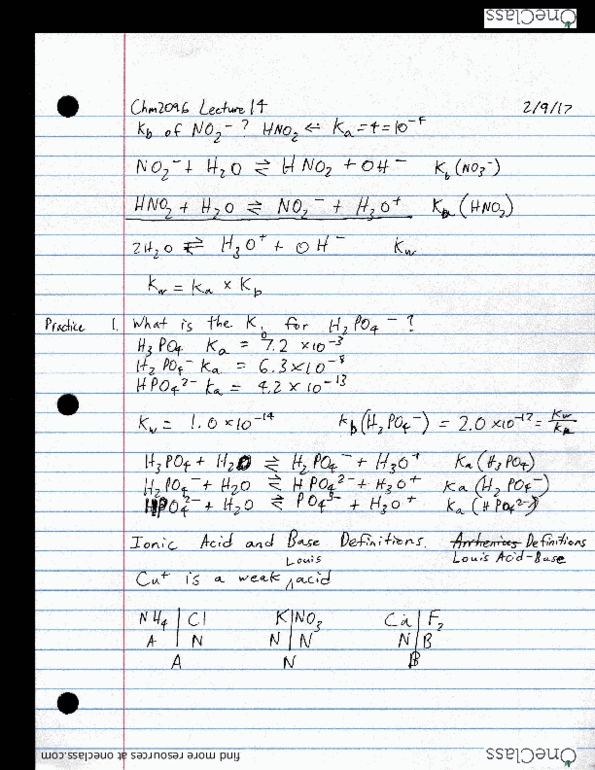 OneClass
Chm2096 Lecture 14 2/9/17
Kb of NO2⁻ ? HNO2 ↔ Ka = 4 = 10⁻⁴
NO2⁻ + H2O ⇌ HNO2 + OH⁻ Kb (NO3⁻)
HNO2 + H2O ⇌ NO2⁻ + H3O⁺ Ka (HNO2)
2H2O ⇌ H3O⁺ + OH⁻ Kw
Kw = Ka × Kb
Practice 1. What is the Kb for H2PO4⁻ ?
H3PO4 Ka = 7.2 × 10⁻³
H2PO4⁻ Ka = 6.3 × 10⁻⁸
HPO4²⁻ Ka = 4.2 × 10⁻¹³
Kw = 1.0 × 10⁻¹⁴ Kb (H2PO4⁻) = 2.0 × 10⁻¹² = Kw/Ka
H3PO4 + H2O ⇌ H2PO4⁻ + H3O⁺ Ka (H3PO4)
H2PO4⁻ + H2O ⇌ HPO4²⁻ + H3O⁺ Ka (H2PO4⁻)
HPO4²⁻ + H2O ⇌ PO4³⁻ + H3O⁺ Ka (HPO4²⁻)
Ionic Acid and Base Definitions. Arrhenius Definitions
Louis Acid-Base
Cu⁺ is a weak Louis acid
NH4 | Cl K | NO3 Ca | F2
A | N N | N N | B
A N B
find more resources at oneclass.com OneClass